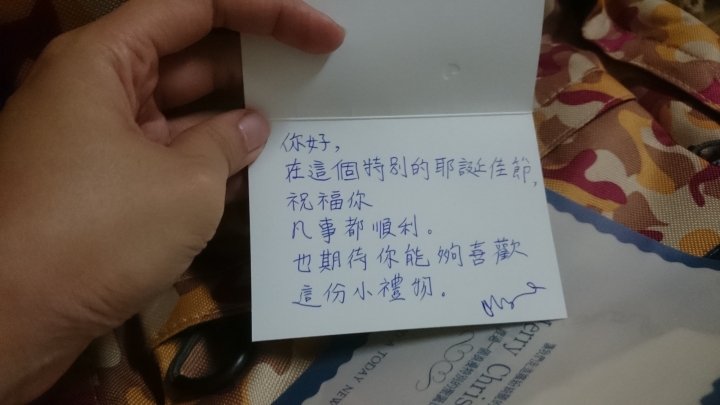 你好,
在這個特別的耶誕佳節,
祝福你
凡事都順利。
也期待你能夠喜歡
這份小禮物。
Merry Chris
TODAY NEW